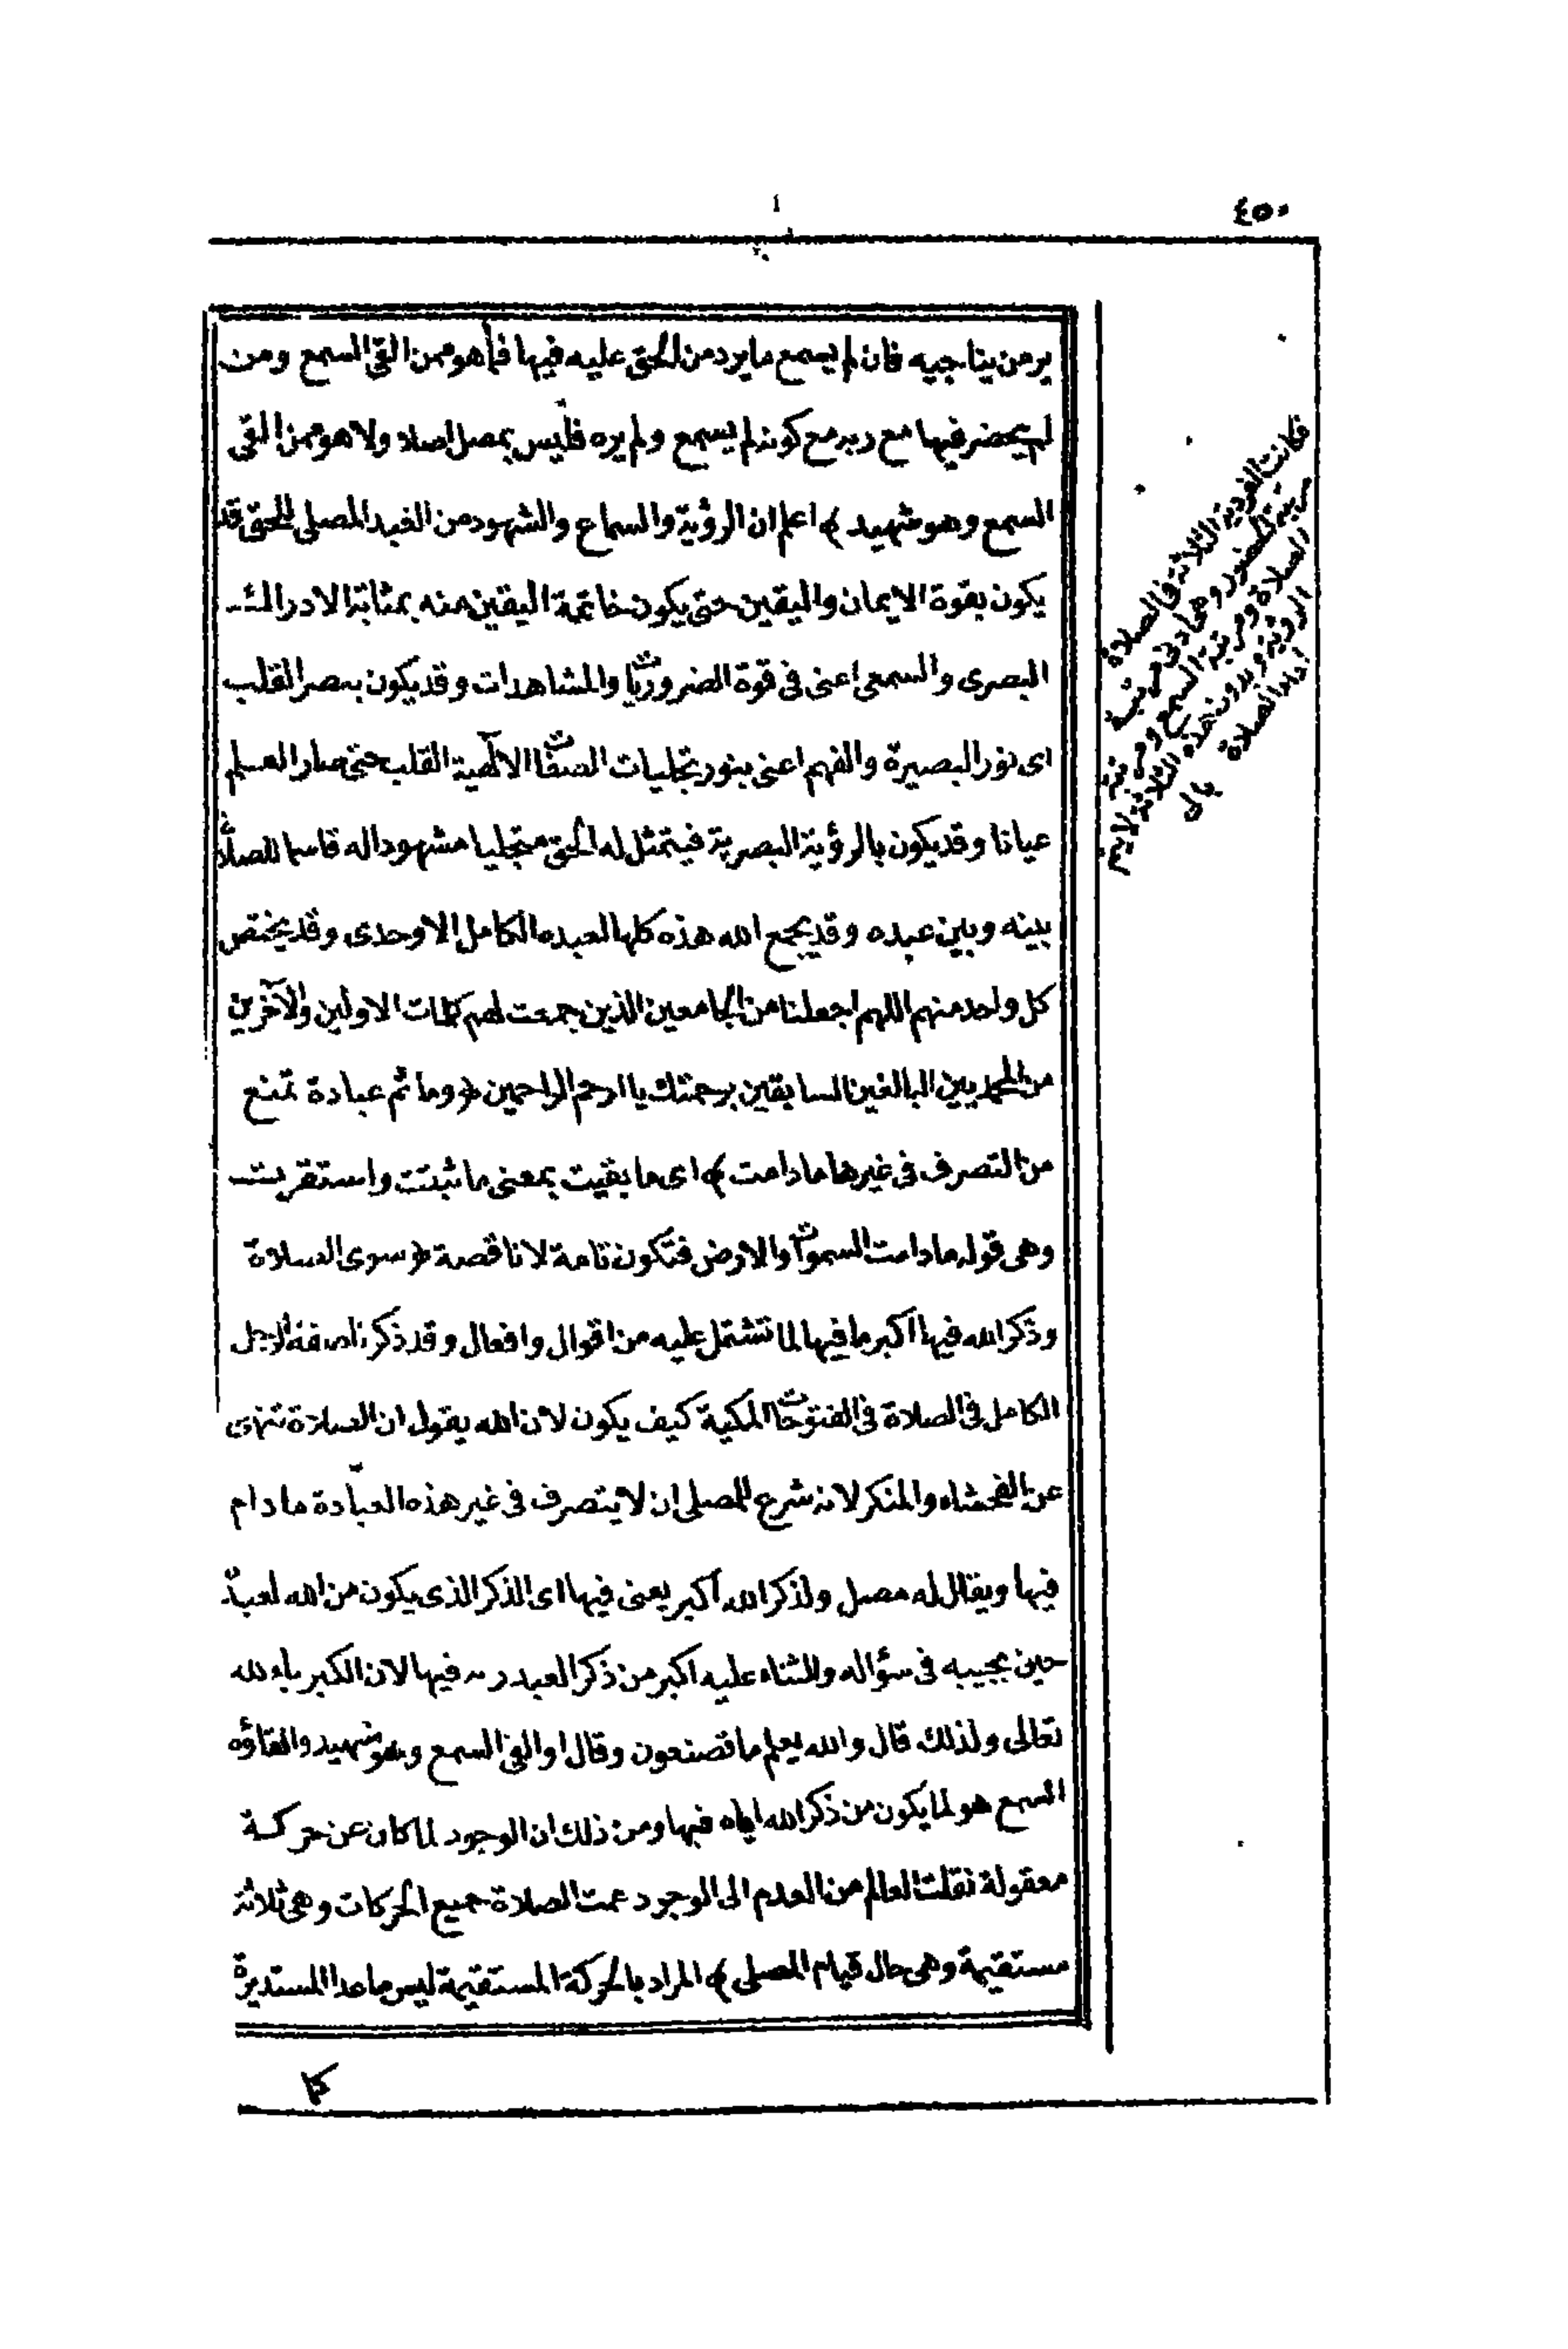 ٤٥٠
ير من يناجيه فان لم يسمع ما يرد من الحق عليه فيها فما هو ممن القى السمع ومن
لم يحضر فيها مع ربه مع كونه لم يسمع ولم يره فليس بمصل اصلا ولا هو ممن القى
السمع وهو شهيد ﴾ اعلم ان الرؤية والسماع والشهود من العبد المصلى للحق قد
يكون بقوة الايمان واليقين حتى يكون خاتمة اليقين منه بمثابة الادراك
البصرى والسمعى اعنى فى قوة الضروريات والمشاهدات وقد يكون ببصر القلب
اى نور البصيرة والفهم اعنى بنور تجليات الصفات الالهية القلب حتى صار العلم
عيانا وقد يكون بالرؤية البصرية فيتمثل له الحق متجليا مشهودا له قاسما للصلاة
بينه وبين عبده وقد يجمع الله هذه كلها لعبده الكامل الاوحدى وقد يختص
كل واحد منهم اللهم اجعلنا من الجامعين الذين جمعت لهم كمالات الاولين والآخرين
من المحمديين البالغين السابقين برحمتك يا ارحم الراحمين ﴿ وما ثم عبادة تمنع
من التصرف فى غيرها ما دامت ﴾ اى ما بقيت بمعنى ما ثبتت واستقرت
وهى قوله ما دامت السموات والارض فتكون تامة لا ناقصة ﴿ سوى الصلاة
وذكر الله فيها اكبر ما فيها لما تشتمل عليه من اقوال وافعال وقد ذكرنا صفة الرجل
الكامل فى الصلاة فى الفتوحات المكية كيف يكون لان الله يقول ان الصلاة تنهى
عن الفحشاء والمنكر لانه شرع للمصلى ان لا يتصرف فى غير هذه العبادة ما دام
فيها ويقال له مصل ولذكر الله اكبر يعنى فيها اى الذكر الذى يكون من الله لعبده
حين يجيبه فى سؤاله والثناء عليه اكبر من ذكر العبد ربه فيها لان الكبرياء لله
تعالى ولذلك قال والله يعلم ما تصنعون وقال او القى السمع وهو شهيد والقاؤه
السمع هو لما يكون من ذكر الله اياه فيها ومن ذلك ان الوجود لما كان عن حركة
معقولة نقلت العالم من العدم الى الوجود عمت الصلاة جميع الحركات وهى ثلاثة
مستقيمة وهى حال قيام المصلى ﴾ المراد بالحركة المستقيمة ليس ما عدا المستديرة
فكانت الفردية الثلاثة فى الصلاة
مرتبة الحضور وهى ادنى مرتبة
الصلاة ومرتبة السمع ومرتبة
الرؤية وبدون هذه الثلاثة لا يتم
اداء الصلاة
بالى